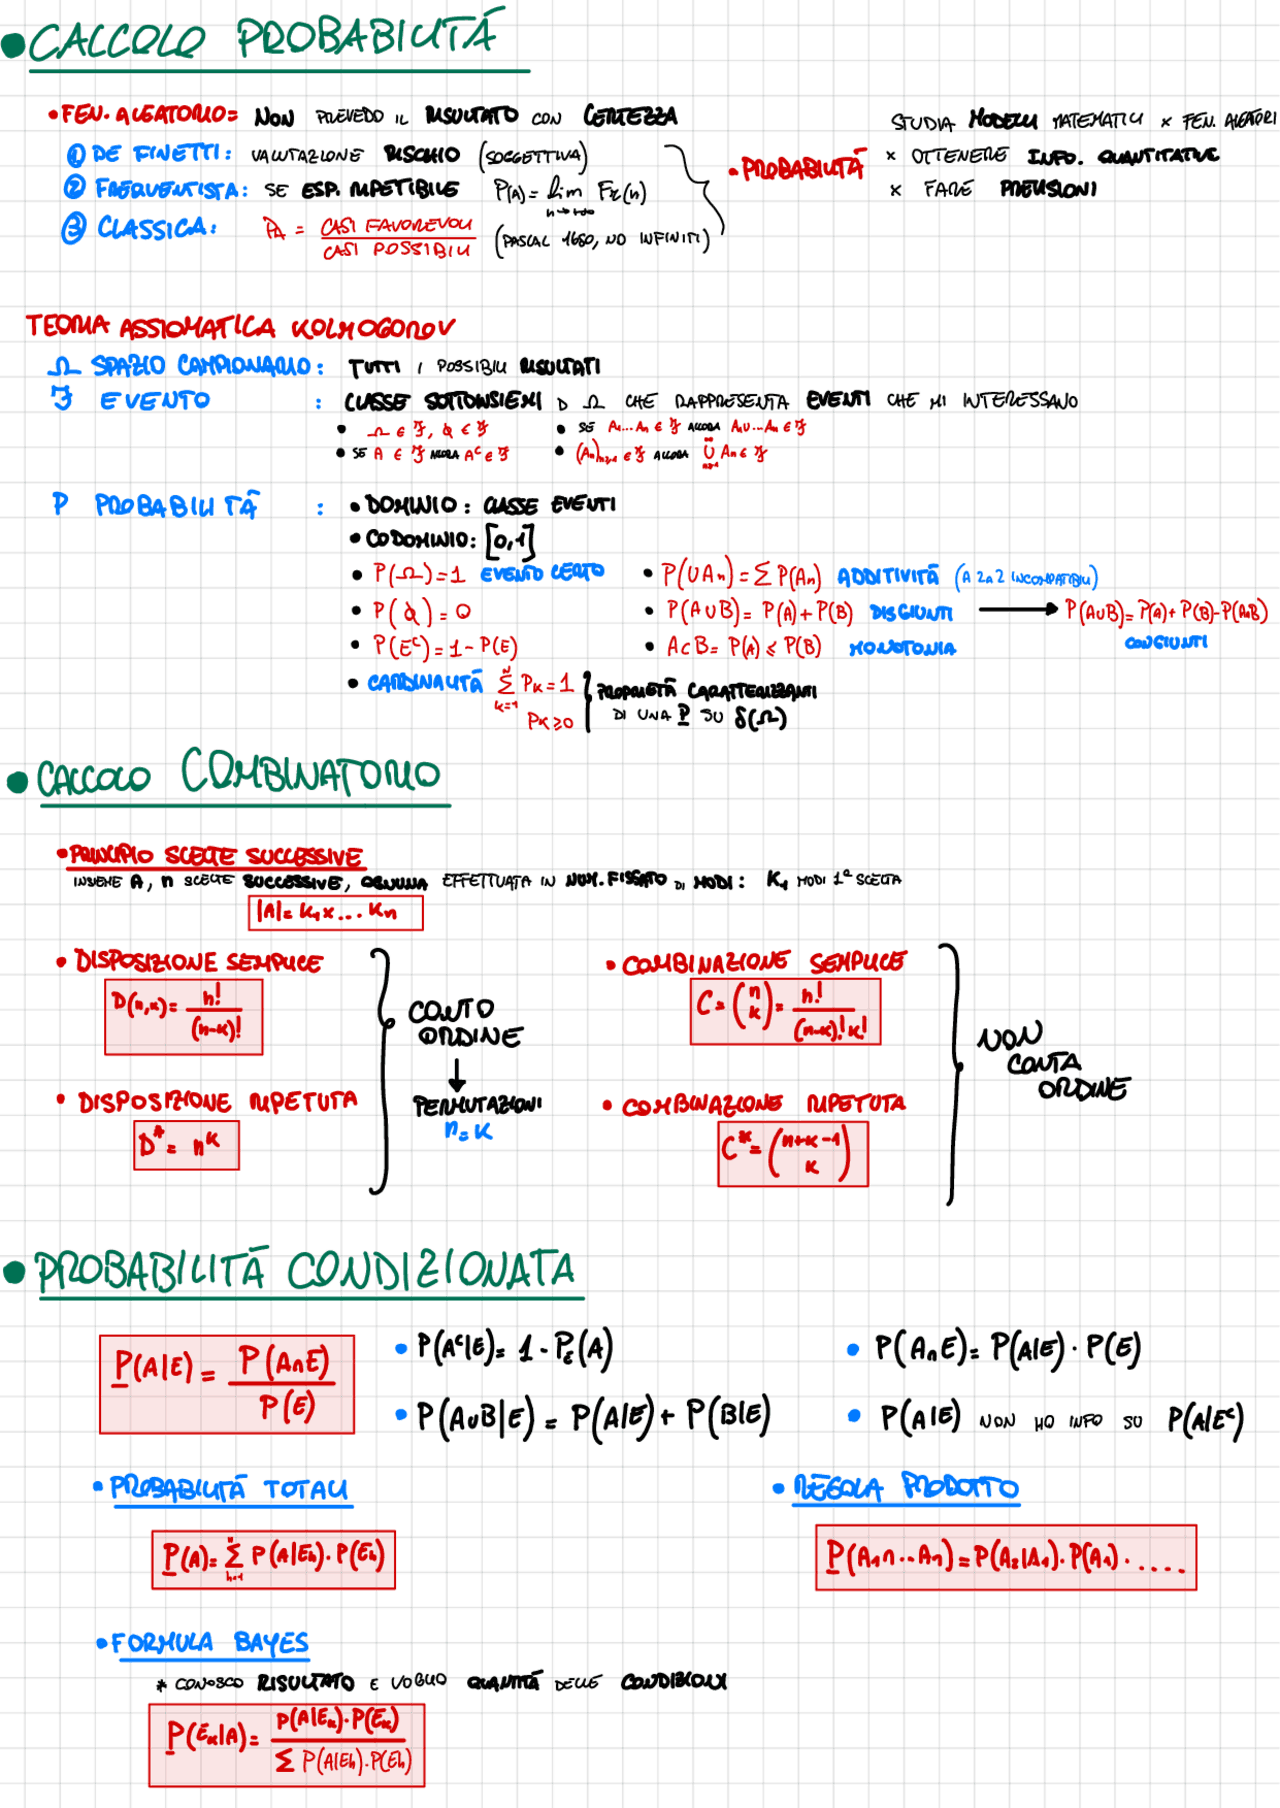 • CALCOLO PROBABILITÁ
• FEN. ALEATORIO = NON PREVEDO IL RISULTATO CON CERTEZZA
① DE FINETTI: VALUTAZIONE RISCHIO (SOGGETTIVA)
② FREQUENTISTA: SE ESP. RIPETIBILE P(A) = lim n→+∞ Fε(n)
③ CLASSICA: PA = CASI FAVOREVOLI / CASI POSSIBILI (PASCAL 1660, NO INFINITI)
• PROBABILITÁ
STUDIA MODELLI MATEMATICI × FEN. ALEATORI
× OTTENERE INFO. QUANTITATIVE
× FARE PREVISIONI
TEORIA ASSIOMATICA KOLMOGOROV
Ω SPAZIO CAMPIONARIO: TUTTI I POSSIBILI RISULTATI
ℱ EVENTO : CLASSE SOTTOINSIEMI D Ω CHE RAPPRESENTA EVENTI CHE MI INTERESSANO
• Ω ∈ ℱ, ∅ ∈ ℱ • SE A₁...An ∈ ℱ ALLORA A₁∪...An ∈ ℱ
• SE A ∈ ℱ ALLORA Aᶜ ∈ ℱ • (An)n≥1 ∈ ℱ ALLORA ∞∪n=1 An ∈ ℱ
P PROBABILITÁ : • DOMINIO: CLASSE EVENTI
• CODOMINIO: [0,1]
• P(Ω)=1 EVENTO CERTO • P(∪An) = ΣP(An) ADDITIVITÁ (A 2 a 2 INCOMPATIBILI)
• P(∅)=0 • P(A∪B) = P(A)+P(B) DISGIUNTI → P(A∪B) = P(A)+P(B)-P(A∩B)
CONGIUNTI
• P(Eᶜ)=1-P(E) • A⊂B = P(A) ≤ P(B) MONOTONIA
• CARDINALITÁ Σ k=1 Pk=1 PROPRIETÁ CARATTERIZZANTI
Pk≥0 DI UNA P SU δ(Ω)
• CALCOLO COMBINATORIO
• PRINCIPIO SCELTE SUCCESSIVE
INSIEME A, n SCELTE SUCCESSIVE, OGNUNA EFFETTUATA IN NUM. FISSATO DI MODI: K₁ MODI 1ª SCELTA
|A| = K₁×...Kn
• DISPOSIZIONE SEMPLICE
D(n,k) = n! / (n-k)!
• DISPOSIZIONE RIPETUTA
D* = nᵏ
CONTO
ORDINE
↓
PERMUTAZIONI
n = K
• COMBINAZIONE SEMPLICE
C = (n k) = n! / (n-k)! k!
• COMBINAZIONE RIPETUTA
C* = (n+k-1 k)
NON
CONTA
ORDINE
• PROBABILITÁ CONDIZIONATA
P(A|E) = P(A∩E) / P(E)
• P(Aᶜ|E) = 1 - Pε(A)
• P(A∪B|E) = P(A|E) + P(B|E)
• P(A∩E) = P(A|E) · P(E)
• P(A|E) NON HO INFO SU P(A|Eᶜ)
• PROBABILITÁ TOTALI
P(A) = Σ n h=1 P(A|Eh) · P(Eh)
• REGOLA PRODOTTO
P(A₁∩...An) = P(A₂|A₁) · P(A₁) · .....
• FORMULA BAYES
* CONOSCO RISULTATO E VOGLIO QUANTITÁ DELLE CONDIZIONI
P(Ek|A) = P(A|Ek) · P(Ek) / Σ P(A|Eh) · P(Eh)